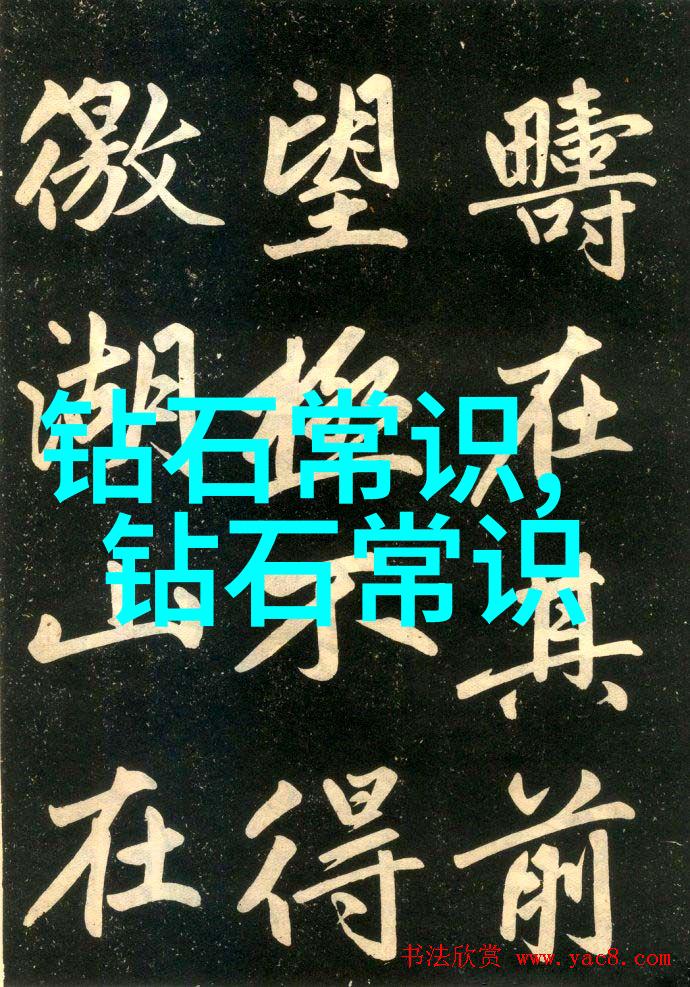 钻石常识,
钻石常识
疇在其前
望極不得
徼湖山在
书法欣赏 www.yac8.com